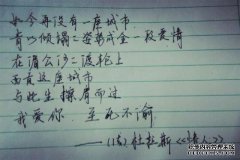 如今再没有一座城市
肯以倾塌之姿成全一段爱情
在湄公河之渡轮上
西贡这座城市
与此生擦肩而过
我爱你，至死不渝
——(法)杜拉斯《情人》